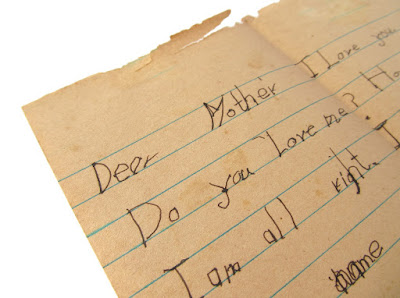 Dear Mother I Love you
Do you Love me? Ho
I am all right. I
name